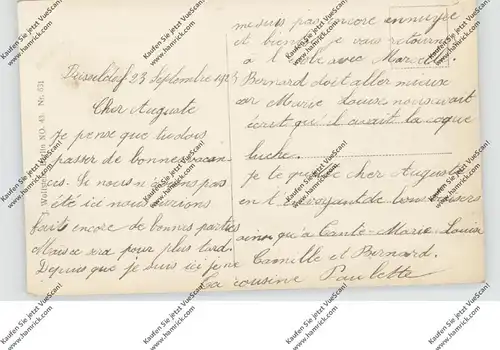 Düsseldorf 23 Septembre 192
Cher Auguste
je pense que tu dois
passer de bonnes vacan
ces. Si nous n'avions pas
été ici nous aurions
faits encore de bonnes parties
Mais ce sera pour plus tard.
Depuis que je suis ici je ne
me suis pas encore ennuyée
et bientôt je vais retourner
à l'école avec Marcelle.
Bernard doit aller mieux
car Marie Louise nous avait
écrit qu'il avait la coque
luche.
je te quitte cher Auguste
en t'envoyant de bons baisers
ainsi qu'à Tante Marie-Louise
Camille et Bernard.
Ta cousine Paulette
NO. 43 Nr. 531
Kaufen Sie jetzt VuesScan!
www.hamrick.com